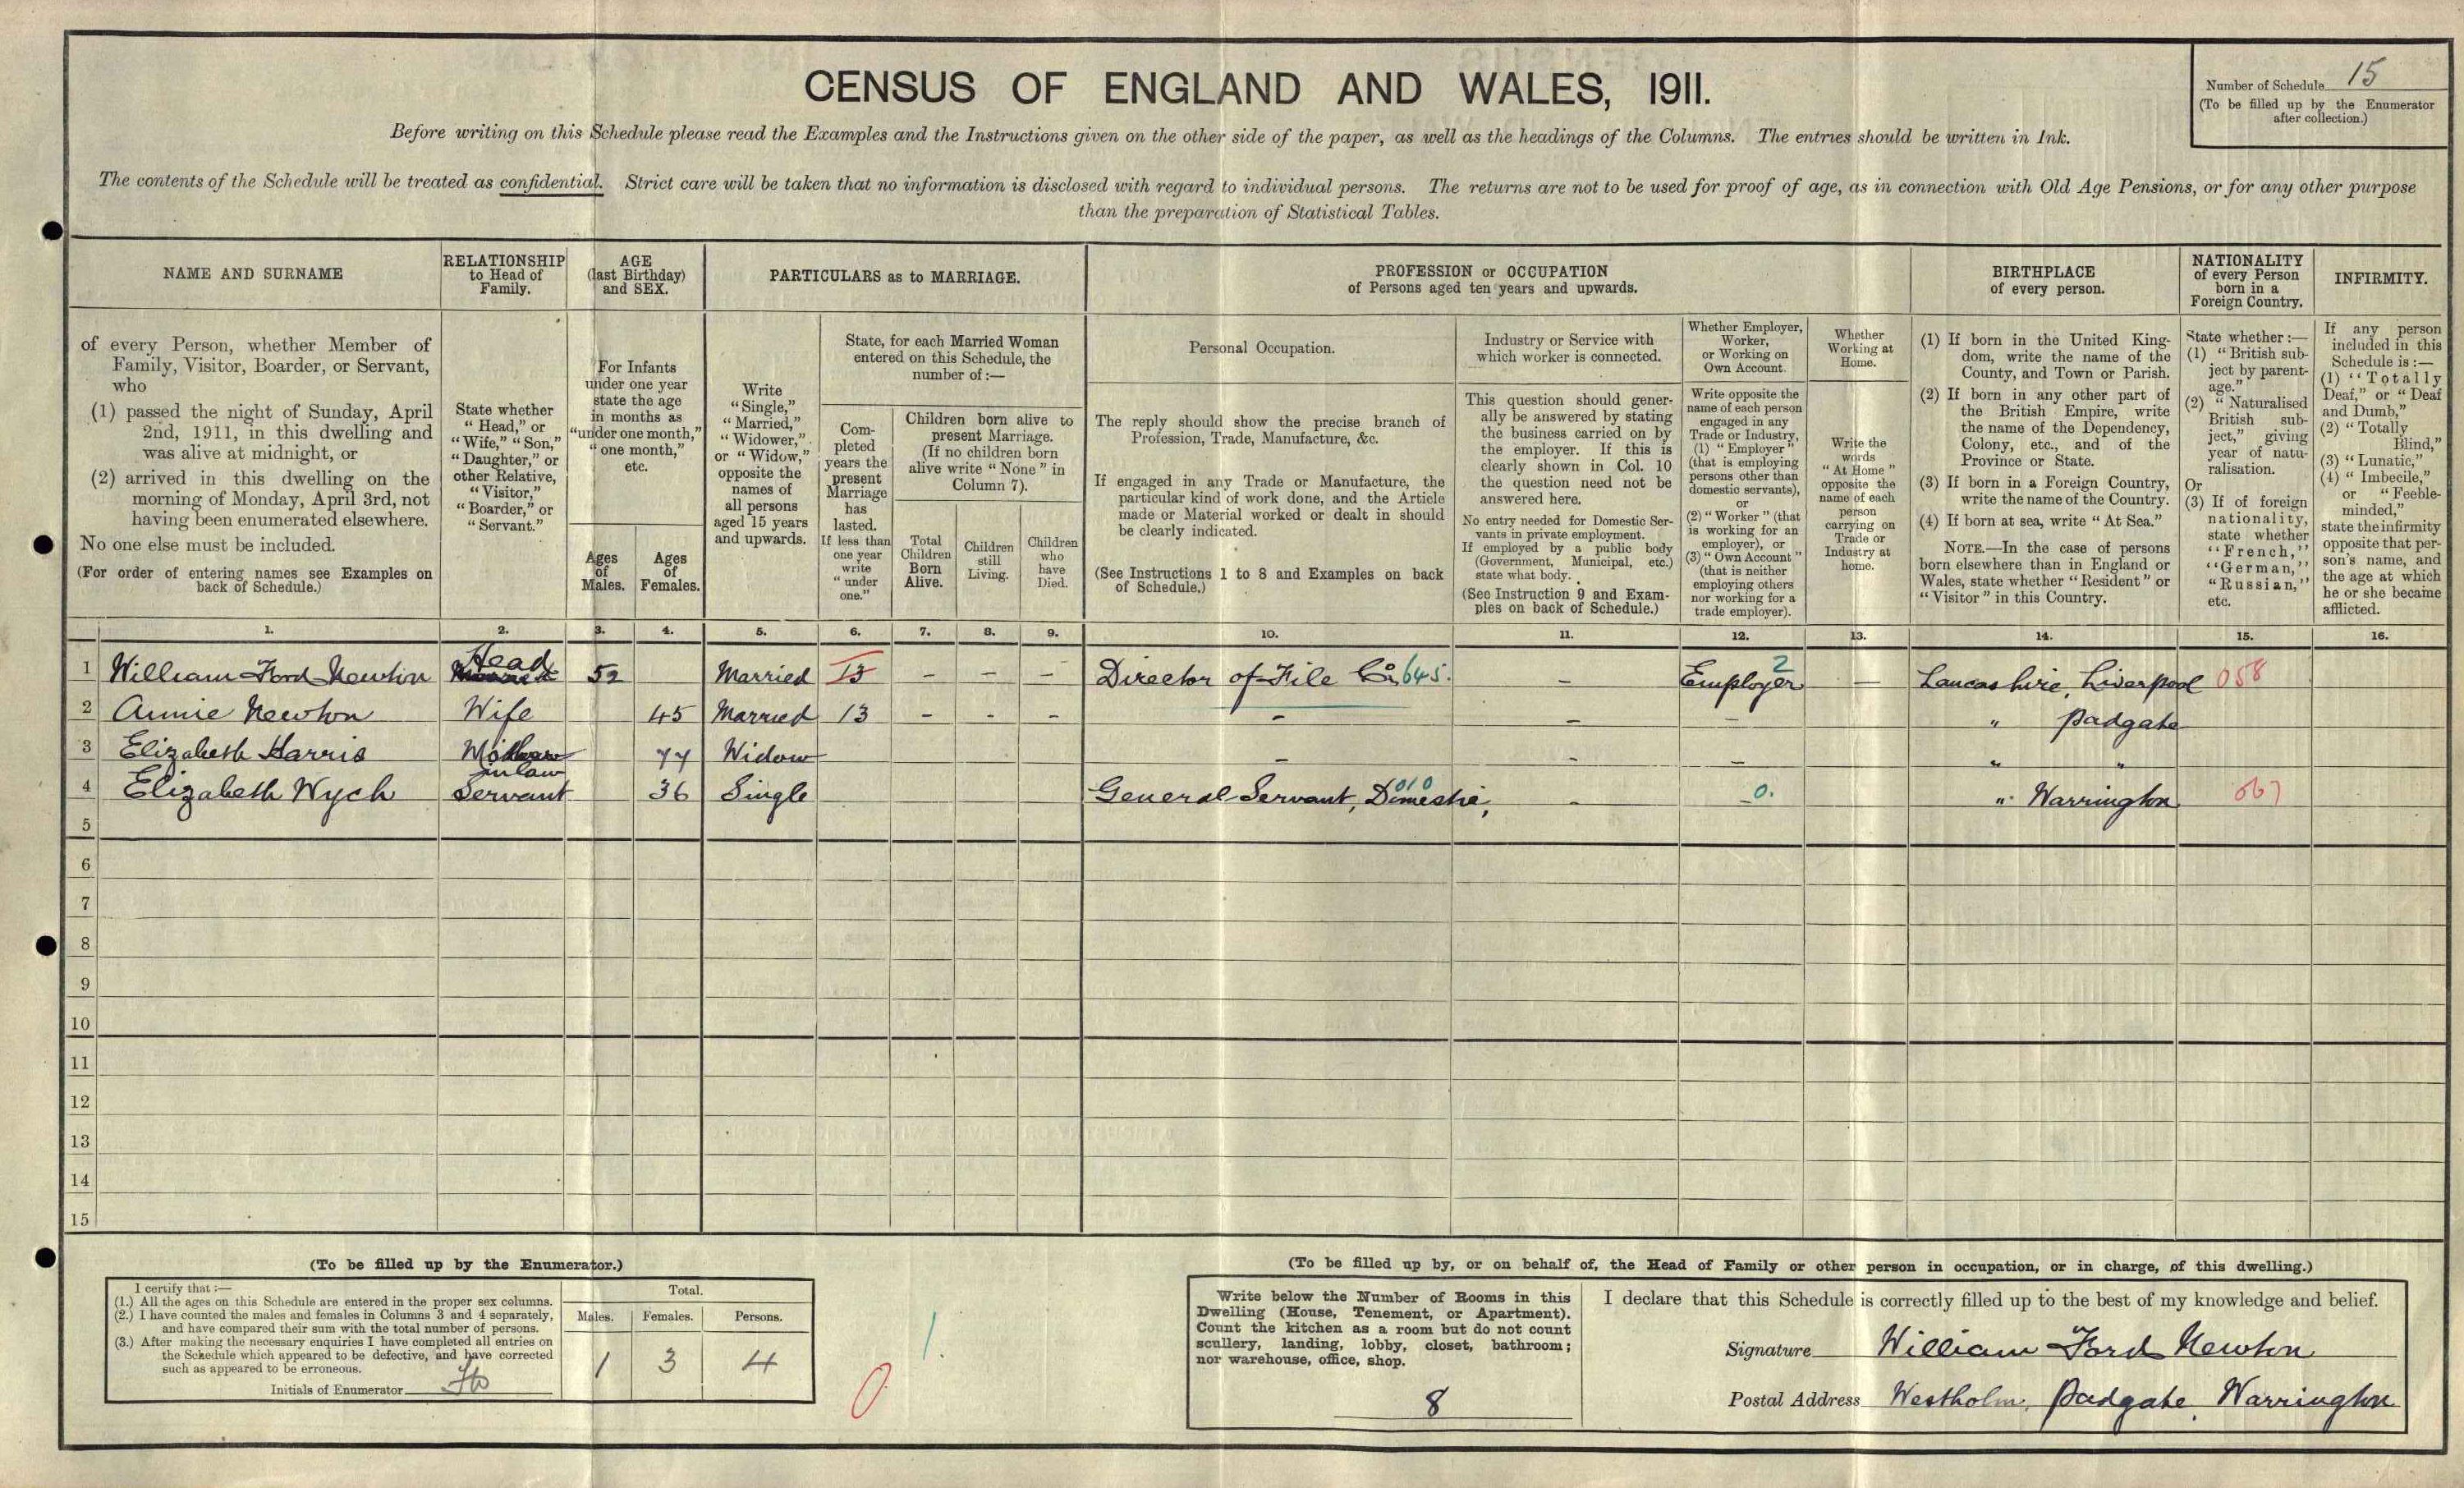 CENSUS OF ENGLAND AND WALES, 1911.
Number of Schedule 15
(To be filled up by the Enumerator
after collection.)
Before writing on this Schedule please read the Examples and the Instructions given on the other side of the paper, as well as the headings of the Columns. The entries should be written in Ink.
The contents of the Schedule will be treated as confidential. Strict care will be taken that no information is disclosed with regard to individual persons. The returns are not to be used for proof of age, as in connection with Old Age Pensions, or for any other purpose
than the preparation of Statistical Tables.
NAME AND SURNAME
of every Person, whether Member of
Family, Visitor, Boarder, or Servant,
who
(1) passed the night of Sunday, April
2nd, 1911, in this dwelling and
was alive at midnight, or
(2) arrived in this dwelling on the
morning of Monday, April 3rd, not
having been enumerated elsewhere.
No one else must be included.
(For order of entering names see Examples on
back of Schedule.)
RELATIONSHIP
to Head of
Family.
State whether
"Head," or
"Wife," "Son,"
"Daughter," or
other Relative,
"Visitor,"
"Boarder," or
"Servant."
AGE
(last Birthday)
and SEX.
For Infants
under one year
state the age
in months as
"under one month,"
"one month,"
etc.
Ages
of
Males.
Ages
of
Females.
PARTICULARS as to MARRIAGE.
Write
"Single,"
"Married,"
"Widower,"
or "Widow,"
opposite the
names of
all persons
aged 15 years
and upwards.
State, for each Married Woman
entered on this Schedule, the
number of:—
Com-
pleted
years the
present
Marriage
has
lasted.
If less than
one year
write
"under
one."
Children born alive to
present Marriage.
(If no children born
alive write "None" in
Column 7).
Total
Children
Born
Alive.
Children
still
Living.
Children
who
have
Died.
PROFESSION or OCCUPATION
of Persons aged ten years and upwards.
Personal Occupation.
The reply should show the precise branch of
Profession, Trade, Manufacture, &c.
If engaged in any Trade or Manufacture, the
particular kind of work done, and the Article
made or Material worked or dealt in should
be clearly indicated.
(See Instructions 1 to 8 and Examples on back
of Schedule.)
Industry or Service with
which worker is connected.
This question should gener-
ally be answered by stating
the business carried on by
the employer. If this is
clearly shown in Col. 10
the question need not be
answered here.
No entry needed for Domestic Ser-
vants in private employment.
If employed by a public body
(Government, Municipal, etc.)
state what body.
(See Instruction 9 and Exam-
ples on back of Schedule.)
Whether Employer,
Worker,
or Working on
Own Account.
Write opposite the
name of each person
engaged in any
Trade or Industry,
(1) "Employer"
(that is employing
persons other than
domestic servants),
or
(2) "Worker" (that
is working for an
employer), or
(3) "Own Account"
(that is neither
employing others
nor working for a
trade employer).
Whether
Working at
Home.
Write the
words
"At Home"
opposite the
name of each
person
carrying on
Trade or
Industry at
home.
BIRTHPLACE
of every person.
(1) If born in the United King-
dom, write the name of the
County, and Town or Parish.
(2) If born in any other part of
the British Empire, write
the name of the Dependency,
Colony, etc., and of the
Province or State.
(3) If born in a Foreign Country,
write the name of the Country.
(4) If born at sea, write "At Sea."
NOTE.—In the case of persons
born elsewhere than in England or
Wales, state whether "Resident" or
"Visitor" in this Country.
NATIONALITY
of every Person
born in a
Foreign Country.
State whether:—
(1) "British sub-
ject by parent-
age."
(2) "Naturalised
British sub-
ject," giving
year of natu-
ralisation.
Or
(3) If of foreign
nationality,
state whether
"French,"
"German,"
"Russian,"
etc.
INFIRMITY.
If any person
included in this
Schedule is:—
(1) "Totally
Deaf," or "Deaf
and Dumb,"
(2) "Totally
Blind,"
(3) "Lunatic,"
(4) "Imbecile,"
or "Feeble-
minded,"
state the infirmity
opposite that per-
son's name, and
the age at which
he or she became
afflicted.
1. 2. 3. 4. 5. 6. 7. 8. 9. 10. 11. 12. 13. 14. 15. 16.
1 William Ford Newton Head 52 Married 13 – – – Director of File Co. 645. – Employer 2 – Lancashire, Liverpool 058
2 Annie Newton Wife 45 Married 13 – – – – – – " Padgate
3 Elizabeth Harris Mother in law 77 Widow – – – " "
4 Elizabeth Wych Servant 36 Single General Servant, Domestic, 010 – 0. " Warrington 067
5
6
7
8
9
10
11
12
13
14
15
(To be filled up by the Enumerator.)
I certify that:—
(1.) All the ages on this Schedule are entered in the proper sex columns.
(2.) I have counted the males and females in Columns 3 and 4 separately,
and have compared their sum with the total number of persons.
(3.) After making the necessary enquiries I have completed all entries on
the Schedule which appeared to be defective, and have corrected
such as appeared to be erroneous.
Initials of Enumerator
Total.
Males. Females. Persons.
1 3 4
0 1.
(To be filled up by, or on behalf of, the Head of Family or other person in occupation, or in charge, of this dwelling.)
Write below the Number of Rooms in this
Dwelling (House, Tenement, or Apartment).
Count the kitchen as a room but do not count
scullery, landing, lobby, closet, bathroom;
nor warehouse, office, shop.
8
I declare that this Schedule is correctly filled up to the best of my knowledge and belief.
Signature William Ford Newton
Postal Address Westholm, Padgate, Warrington